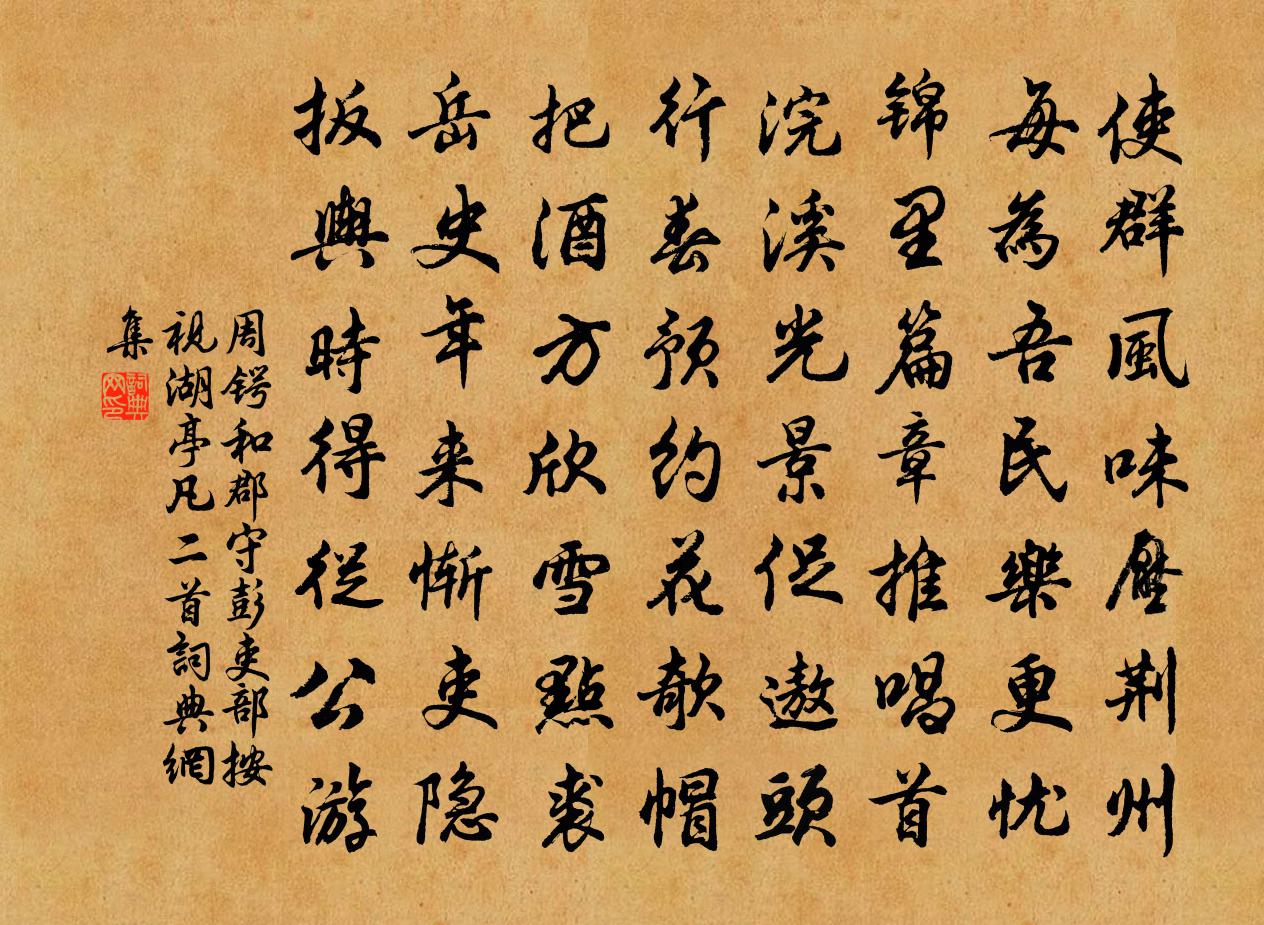 使群風味壓荆州
每為吾民樂更忧
锦里篇章推唱首
浣溪光景促遨頭
行春预约花欹帽
把酒方欣雪點裘
岳史年来惭吏隐
扳輿時得從公游
周锷和郡守彭吏部按
視湖亭凡二首詞典網
集
詞典
网印